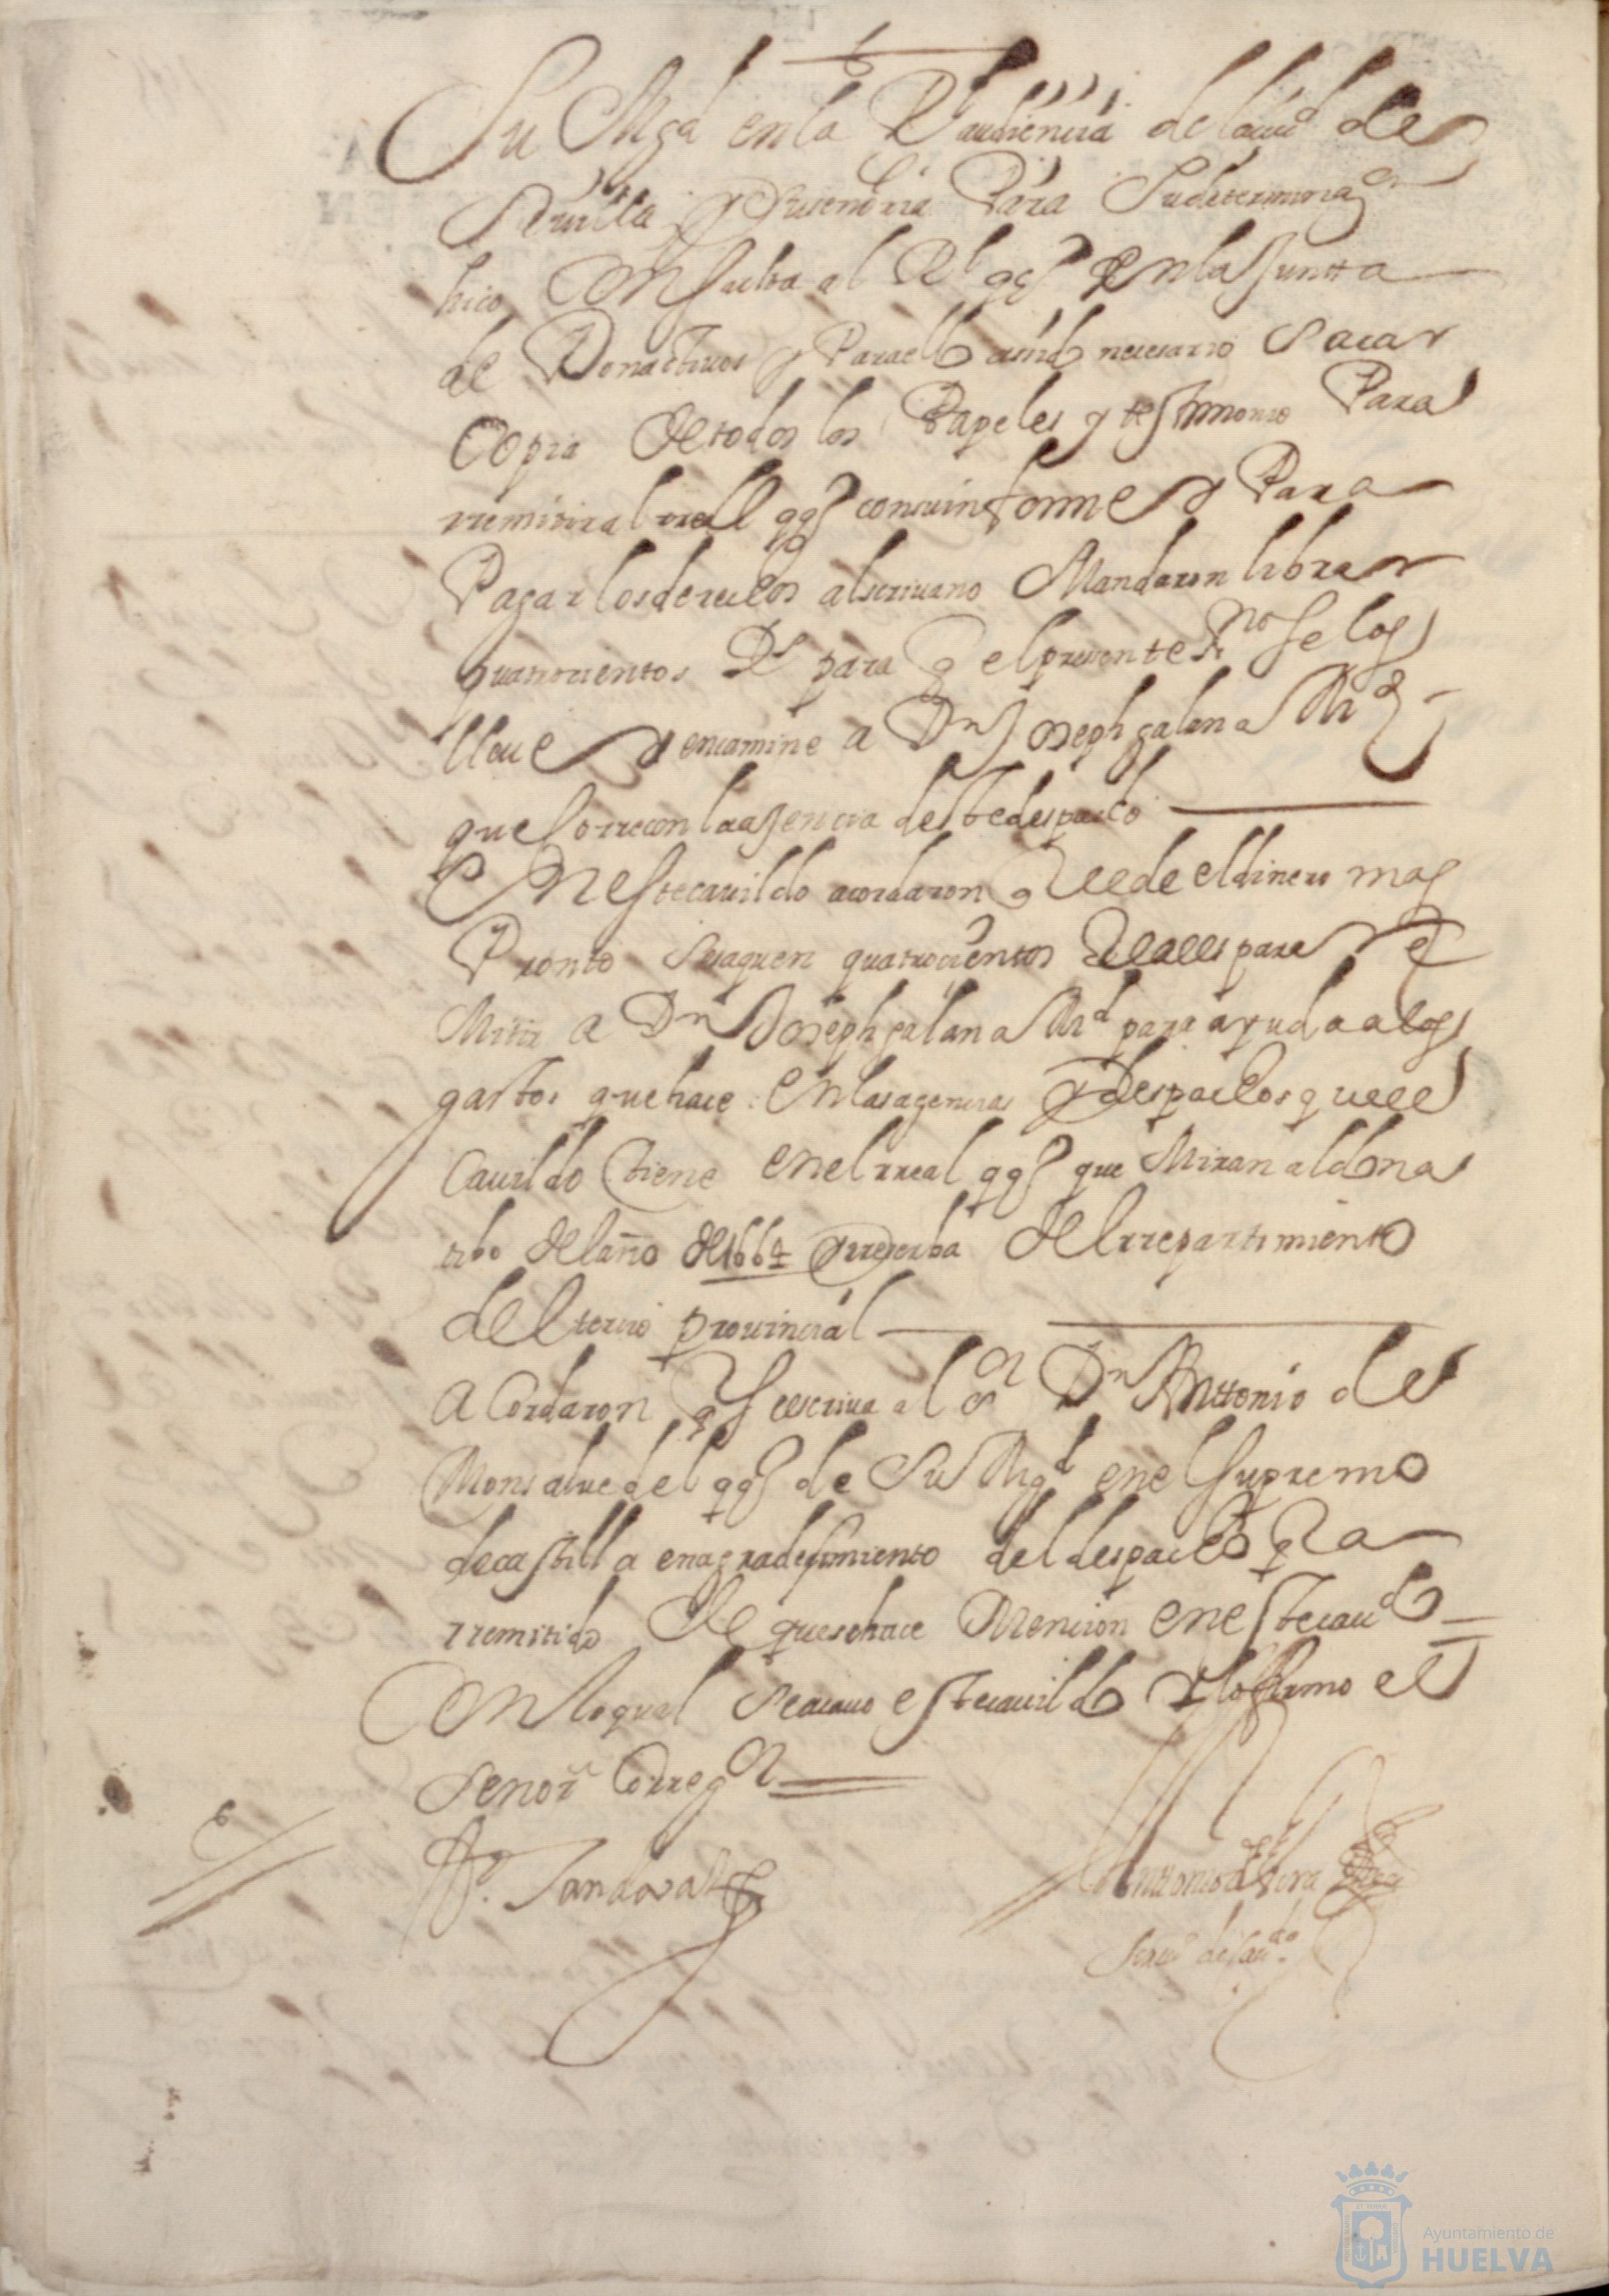 Su Mgd en la Rl audiencia de la ciud de
Seuilla y Su señoria Para Su determinaçon
hico Consulta al Rl qqo en la Junta
de Donatiuos y Para ello a sido necesario Sacar
Copia de todos los Papeles y testimonio Para
rremitir al rreal qqo con su informe y Para
Pagar los derechos al scriuano Mandaron librar
quatrocientos Rs para q el presente sno se los
lleue y encamine a Dn Joseph galan a Md
que Corre con la agencia deste despacho
En este cauildo acordaron q de el dinero mas
Pronto se saquen quatrocientos Reales para Re
Mitir a Dn Joseph galan a Md para ayuda a los
gastos que hace En las agencias y despachos que el
Cauildo tiene en el rreal qqo que Miran al dona
tibo del año de 1664 y rreserba del rrepartimiento
del tercio prouincial
Acordaron q Se escriua al Sor Dn Anttonio de
Monsalue del qqo de Su Mgd en el Supremo
de castilla en agradesimiento del despacho q a
rremitido de que se hace Mencion en este caudo
Con lo qual Se acauo este cauildo y lo firmo el
Señor Corregor
Sandoval
Anttonio de Vera
Scriuo de caudo
Ayuntamiento de
HUELVA